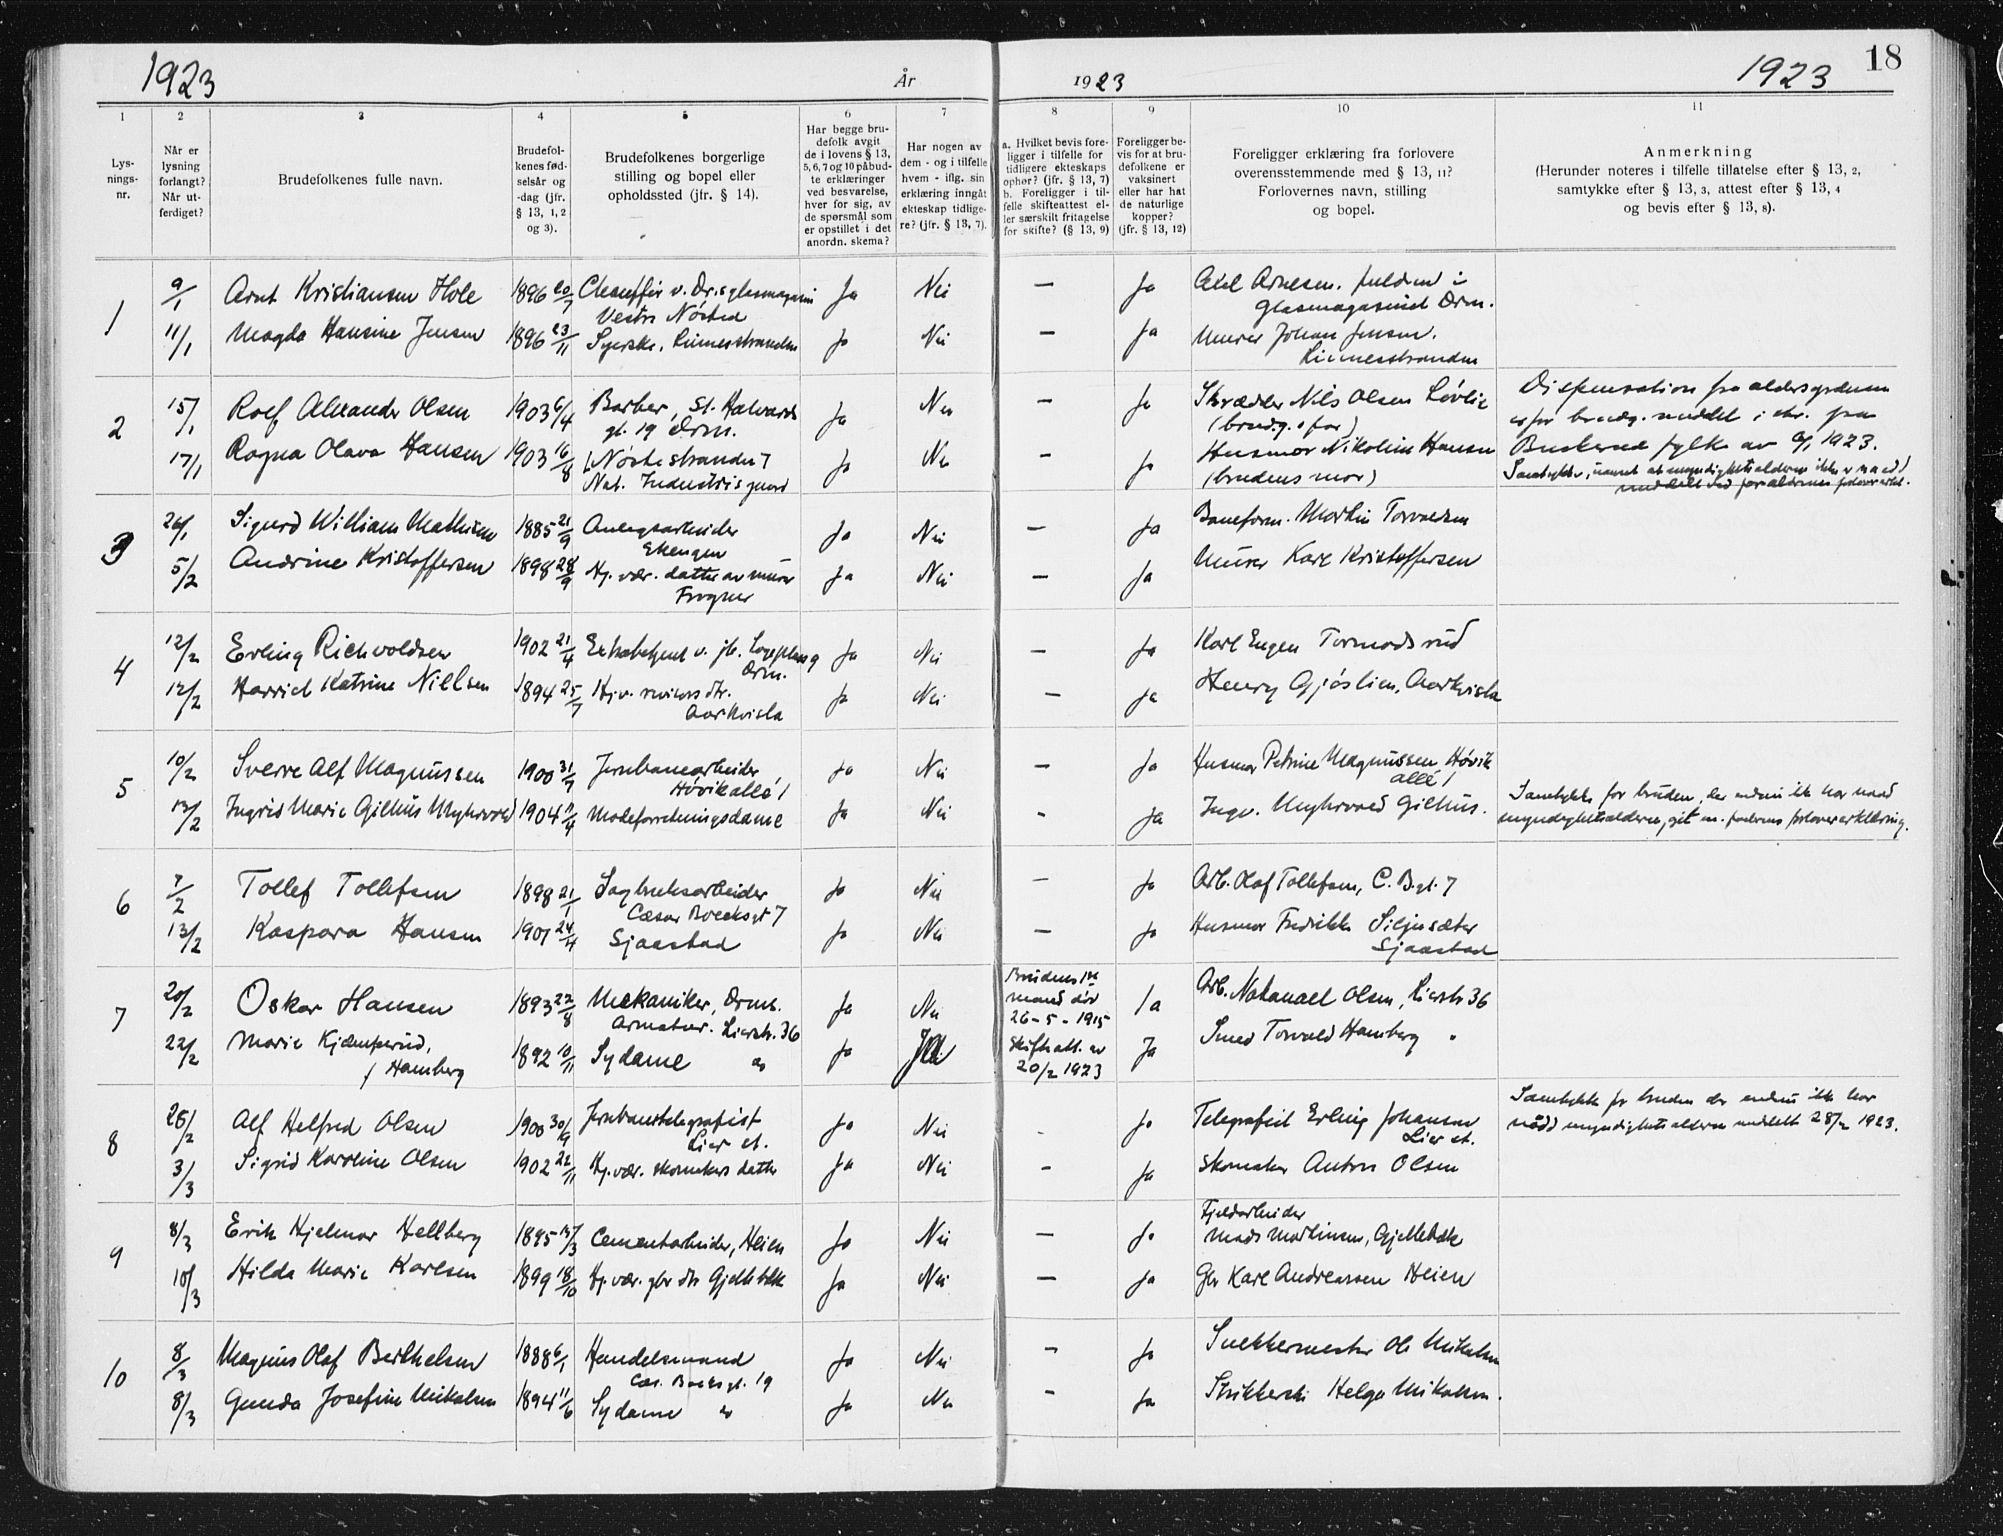 1923
År
1923
1923
18
1 2 3 4 5 6 7 8 9 10 11
Lysnings-nr.
Når er lysning forlangt? Når utferdiget?
Brudefolkenes fulle navn.
Brudefolkenes fødselsår og -dag (jfr. § 13, 1, 2 og 3).
Brudefolkenes borgerlige stilling og bopel eller opholdssted (jfr. § 14).
Har begge brudefolk avgit de i lovens § 13, 5, 6, 7 og 10 påbudte erklæringer ved besvarelse, hver for sig, av de spørsmål som er opstillet i det anordn. skema?
Har nogen av dem - og i tilfelle hvem - iflg. sin erklæring inngåt ekteskap tidligere? (jfr. § 13, 7).
a. Hvilket bevis foreligger i tilfelle for tidligere ekteskaps ophør? (jfr. § 13, 7) b. Foreligger i tilfelle skifteattest eller særskilt fritagelse for skifte? (§ 13, 9)
Foreligger bevis for at brudefolkene er vaksinert eller har hat de naturlige kopper? (jfr. § 13, 12)
Foreligger erklæring fra forlovere overensstemmende med § 13, 11? Forlovernes navn, stilling og bopel.
Anmerkning (Herunder noteres i tilfelle tillatelse efter § 13, 2, samtykke efter § 13, 3, attest efter § 13, 4 og bevis efter § 13, 8).
1 9/1 Arnt Kristiansen Hole 1896 20/7 Chauffør v. Dr.s glasmagasin Ja Nei — Ja Axel Arnesen, i
Vestre Nøsted Glasmagasinet Drm.
11/1 Magda Hansine Jensen 1896 23/11 Syerske, Linnesstranden Ja Nei — Ja Murer Johan Jensen.
Linnesstranden
2 15/1 Rolf Alexander Olsen 1903 6/4 Barber, St. Halvards Ja Nei — Ja Skrædder Nils Olsen Løvlie Dispensation fra aldersgrænsen
gt. 19 Drm. (brudg.s far) for brudg. meddelt i skr. fra
17/1 Ragna Olava Hansen 1903 16/8 Nøstestranden 7 Ja Nei — Ja Husmor Nikoline Hansen Buskerud fylke av 1923.
Nat. Industris gaard (brudens mor) Samtykke, uanset at myndighetsalderen ikke er naadd
meddelt ved forældrenes forlovererkl.
3 26/1 Sigurd William Mathisen 1885 21/9 Anlegsarbeider Ja Nei — Ja Baneform. Martin Torvaldsen
Ekengen
5/2 Andrine Kristoffersen 1898 28/9 Hj. vær. datter av murer Ja Nei — Ja Murer Karl Kristoffersen
Frogner
4 12/2 Erling Richvoldsen 1902 21/4 Extrabetjent v. jb. Losjeplass 9 Ja Nei — Ja Karl Eugen Tormodsrud
Drm.
12/2 Harriet Katrine Nielsen 1894 25/7 Hj.v. dtr. Ja Nei — Ja Henry Gjøslien, Aarkvisla
Aarkvisla
5 10/2 Sverre Alf Magnussen 1900 31/7 Jernbanearbeider Ja Nei — Ja Husmor Petrine Magnussen Høvik
Høvikallé 1 allé 1
13/2 Ingrid Marie Gilhus Myhrvold 1904 11/4 Modeforretningsdame Ja Nei - Ja Ingv. Myhrvold Gilhus. Samtykke for bruden, der endnu ikke har naadd
myndighetsalderen, git m. farens forlovererklæring.
6 7/2 Tollef Tollefsen 1898 21/1 Sagbruksarbeider Ja Nei — Ja Arb. Olaf Tollefsen, C. B.gt. 7
Cæsar Boecksgt 7
13/2 Kaspara Hansen 1901 24/4 Sjaastad Ja Nei — Ja Husmor Fredrikke Siljusæter
Sjaastad
7 20/2 Oskar Hansen 1893 22/8 Mekaniker, Drms. Ja Nei Brudens 1ste mand død 26-5-1915 Ja Arb. Natanael Olsen, Lierstr. 36
Armatur. Lierstr. 36
22/2 Marie Kjæmperud, 1892 10/11 Sydame " Ja Ja Skifteatt. av 20/2 1923 Ja Smed Torvald Hamberg "
f. Hamberg
8 28/2 Alf Helfred Olsen 1900 30/9 Jernbanetelegrafist Ja Nei - Ja Telegrafist Erling Johansen Samtykke for bruden der endnu ikke har
Lier st. Lier st. nådd myndighetsalderen meddelt 28/2 1923.
3/3 Sigrid Karoline Olsen 1902 22/11 Hj. vær. skomakers datter Ja Nei — Ja Skomaker Anton Olsen
9 8/3 Erik Hjelmar Hellberg 1895 17/3 Cementarbeider, Heien Ja Nei — Ja Fjeldarbeider
Mads Martinsen, Gjellebæk
10/3 Hilda Marie Karlsen 1899 18/10 Hj. vær. gbr dtr Gjellebæk Ja Nei — Ja Gbr Karl Andreassen Heien
10 8/3 Magnus Olaf Berthelsen 1888 6/1 Handelsmand Ja Nei — Ja Snekkermester Ole Mikalsen
Cæs. Boeksgt. 19
8/3 Gunda Josefine Mikalsen 1894 11/6 Sydame " Ja Nei — Ja Strikkerske Helga Mikalsen.